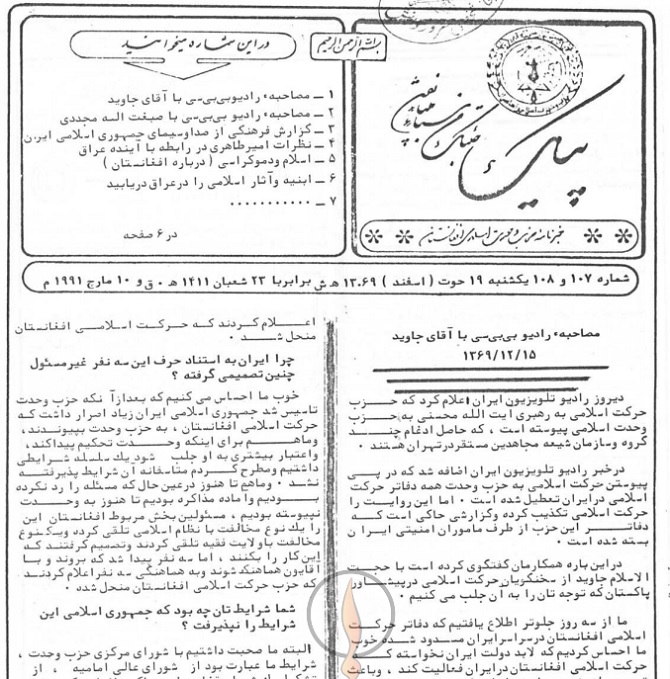 در این شماره میخوانید
۱ ــ مصاحبهء رادیو بی‌بی‌سی با آقای جاوید
۲ ــ مصاحبهء رادیو بی بی‌سی با صبغت اله مجددی
۳ ــ گزارش فرهنگی از صداوسیمای جمهوری اسلامی ایران
۴ ــ نظرات امیرطاهری در رابطه با آینده عراق
۵ ــ اسلام ودموکراسی ( درباره افغانستان )
۶ ــ ابنیه وآثار اسلامی را درعراق دریابید
۷ ــ ..........
در ۶ صفحه
بسم الله الرحمن الرحیم
پیک
خبرنامه حزب حرکت اسلامی افغانستان
شماره ۱۰۷ و ۱۰۸ یکشنبه ۱۹ حوت ( اسفند ) ۱۳۰۶۹ ه‍ ش برابربا ۲۳ شعبان ۱۴۱۱ ه‍ ۰ ق و ۱۰ مارچ ۱۹۹۱ م
مصاحبهء رادیو بی‌بی‌سی با آقای جاوید
۱۳۶۹/۱۲/۱۵
دیروز رادیو تلویزیون ایران اعلام کرد که حزب
حرکت اسلامی به رهبری آیت الله محسنی به حزب
وحدت اسلامی پیوسته است ، که حاصل ادغام چند
گروه وسازمان شیعه مجاهدین مستقردرتهران هستند ۰
درخبر رادیو تلویزیون ایران اضافه شد که در پی
پیوستن حرکت اسلامی به حزب وحدت همه دفاتر حرکت
اسلامی درایران تعطیل شده است ۰ اما این روایت را
حرکت اسلامی تکذیب کرده وگزارشی حاکی است که
دفاتر این حزب از طرف ماموران امنیتی ایران
بسته شده است ۰
دراین باره همکارمان گفتگوی کرده است با حجت
الاسلام جاوید از سخنگریان حرکت اسلامی درپیشاور
پاکستان که توجه تان را به آن جلب می کنیم ۰
ما از سه روز جلوتر اطلاع یافتیم که دفاتر حرکت
اسلامی افغانستان درسراسرایران مسدود شده خوب
ما احساس کردیم که لابد دولت ایران نخواسته که
حرکت اسلامی افغانستان درایران فعالیت کند ، وباعث
اعلام کردند که حرکت اسلامی افغانستان
منحل شد ۰
چرا ایران به استناد حرف این سه نفر غیرمسئول
چنین تصمیمی گرفته ؟
خوب ما احساس می کنیم که بعدازآ نکه حزب وحدت
تاسیس شد جمهوری اسلامی ایران زیاد اصرار داشت که
حرکت اسلامی افغانستان ، به حزب وحدت بپیوندند،
وماهم برای اینکه وحدت تحکیم پیداکند،
واعتبار بیشتری به او جلب شود یك سلسله شرایطی
داشتیم ومطرح کردم متاسفانه آن شرایط پذیرفته
نشد ۰ وماهم تا هنوز درعین حال که مسئله را رد نکرده
بودیم واما ده مذاکره بودیم تا هنوز به وحدت
نپیوسته بودیم ، مسئولین بخش مربوط افغانستان این
را یك نوع مخالفت با نظام اسلامی تلقی کرده ویکنوع
مخالفت باولایت فقیه تلقی کردند وتصمیم گرفتند که
این کار را بکنند ، اما سه نفر پیدا شد که بروند و با
آقایون هماهنگ شوند وبه هماهنگی سه نفراعلام کردند
که حزب حرکت اسلامی افغانستان منحل شده ۰
شما شرایط تان چه بود که جمهوری اسلامی این
شرایط را نپذیرفت ؟
البته ما صحبت داشتیم با شورای مرکزی حزب وحدت ،
شرایط ما عبارت بود از شورای عالی امامیه ، از